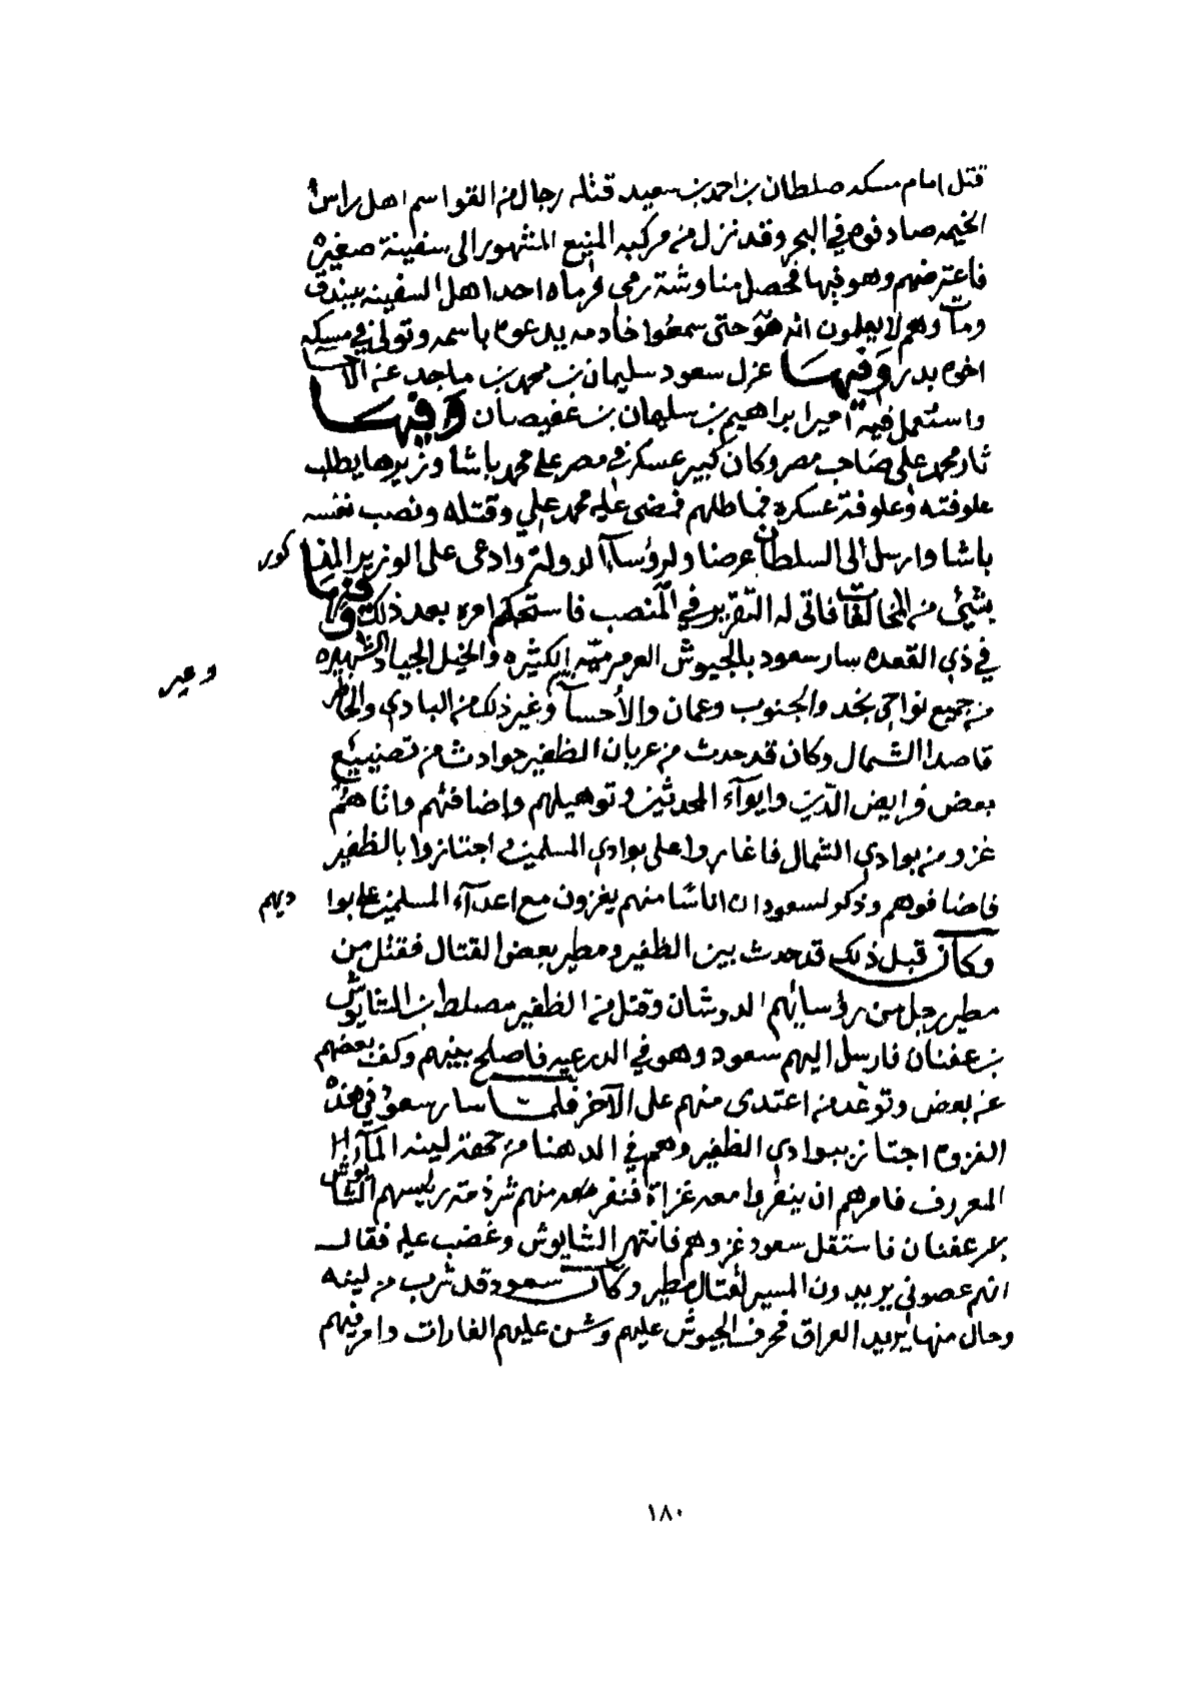 قتل امام مسكه صلطان بن احمد بن سعيد قتله رجال من القواسم اهل راس
الخيمه صادفوه في البحر وقد نزل من مركبه المنيع المشهور الى سفينة صغيرة
فاعترضهم وهو فيها فحصل مناوشة رمي فرماه احد اهل السفينه ببندق
ومات وهم لا يعلمون انه هو حتى سمعوا خادمه يدعوه باسمه وتولى في مسكه
اخوه بدر وفيها عزل سعود سليمان بن محمد بن ماجد عن الاحسا
واستعمل فيه اميرا براهيم بن سلیمان بن عفيصان وفيها
ثار محمد علي صاحب مصر وكان كبير عسكر في مصر على محمد باشا وزيرها يطلب
علوفته وعلوفة عسكره فماطلهم فمضى عليه محمد علي وقتله ونصب نفسه
باشا وارسل الى السلطان عرضا ولرؤسآء الدولة وادعى على الوزير المذكور
بشيئ من المخالفات فاتى له التقرير في المنصب فاستحكم امره بعد ذلك وفيها
في ذي القعده سار سعود بالجيوش العرمرميه الكثيره والخيل الجياد الشهيره
من جميع نواحي نجد والجنوب وعمان والأحسآ وغير ذلك من البادي والحاظر
وعير
قاصدا الشمال وكان قد حدث من عربان الظفير حوادث من تضييع
بعض فرايض الدين وايوآء المحدثين وتوهيلهم واضافتهم واتاهم
غزو من بوادي الشمال فاغاروا على بوادي المسلمين واجتازوا بالظفير
فاضافوهم وذكر لسعود ان اناسا منهم يغزون مع اعدآء المسلمين على بواديهم
وكان قبل ذلك قد حدث بين الظفير ومطير بعض القتال فقتل من
مطير رجل من رؤسايهم الدوشان وقتل من الظفير مصلط بن الشايوش
بن عفنان فارسل اليهم سعود وهو في الدرعيه فاصلح بينهم وكف بعضهم
عن بعض وتوعد من اعتدى منهم على الآخر فلما سار سعود في هذه
الغزوه اجتاز ببوادي الظفير وهم في الدهنا من جهة لينه المآء
المعروف فامرهم ان ينفروا معه غزاة فنفر معه منهم شرذمة رئيسهم الشايوش
بن عفنان فاستقل سعود غزوهم فانتهر الشايوش وغضب عليه فقال
انهم عصوني يريدون المسير لقتال مطير وكان سعود قد شرب من لينه
وحال منها يريد العراق فحرف الجيوش عليهم وشن عليهم الغارات وامر فيهم
١٨٠